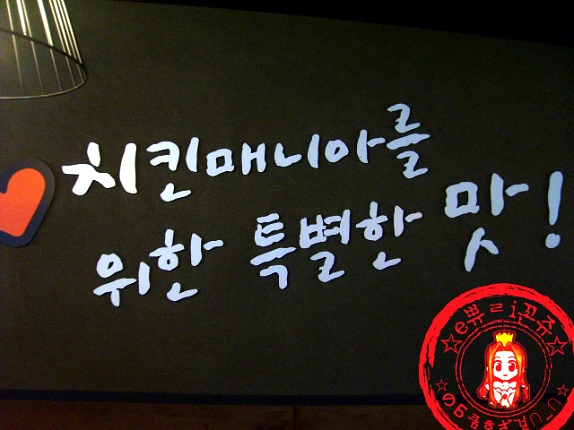 치킨매니아를
위한 특별한 맛!
☆e쀼ㄹi꼬쥬☆